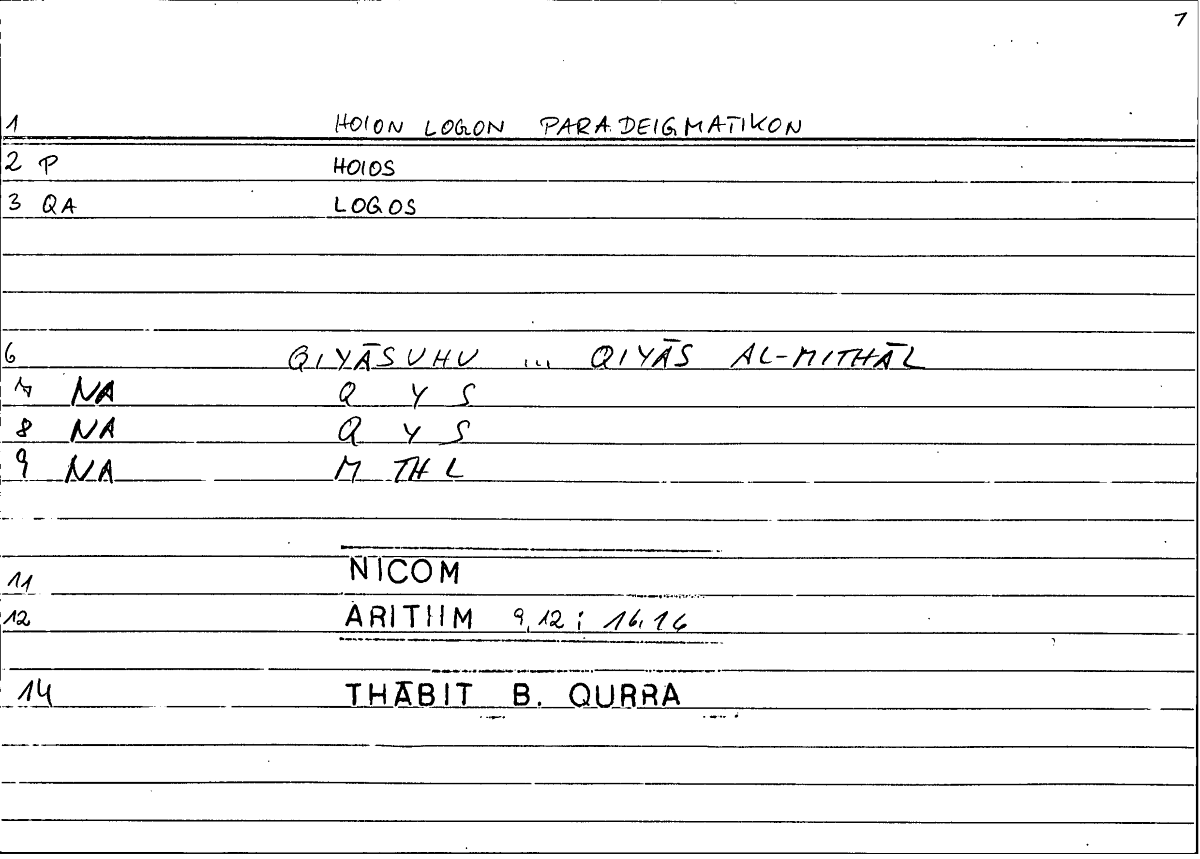 1
1 HOION LOGON PARADEIGMATIKON
2 P HOIOS
3 QA LOGOS
6 QIYĀSUHU ... QIYĀS AL-MITHĀL
7 NA Q Y S
8 NA Q Y S
9 NA M TH L
11 NICOM
12 ARITHM 9,12; 16,16
14 THĀBIT B. QURRA